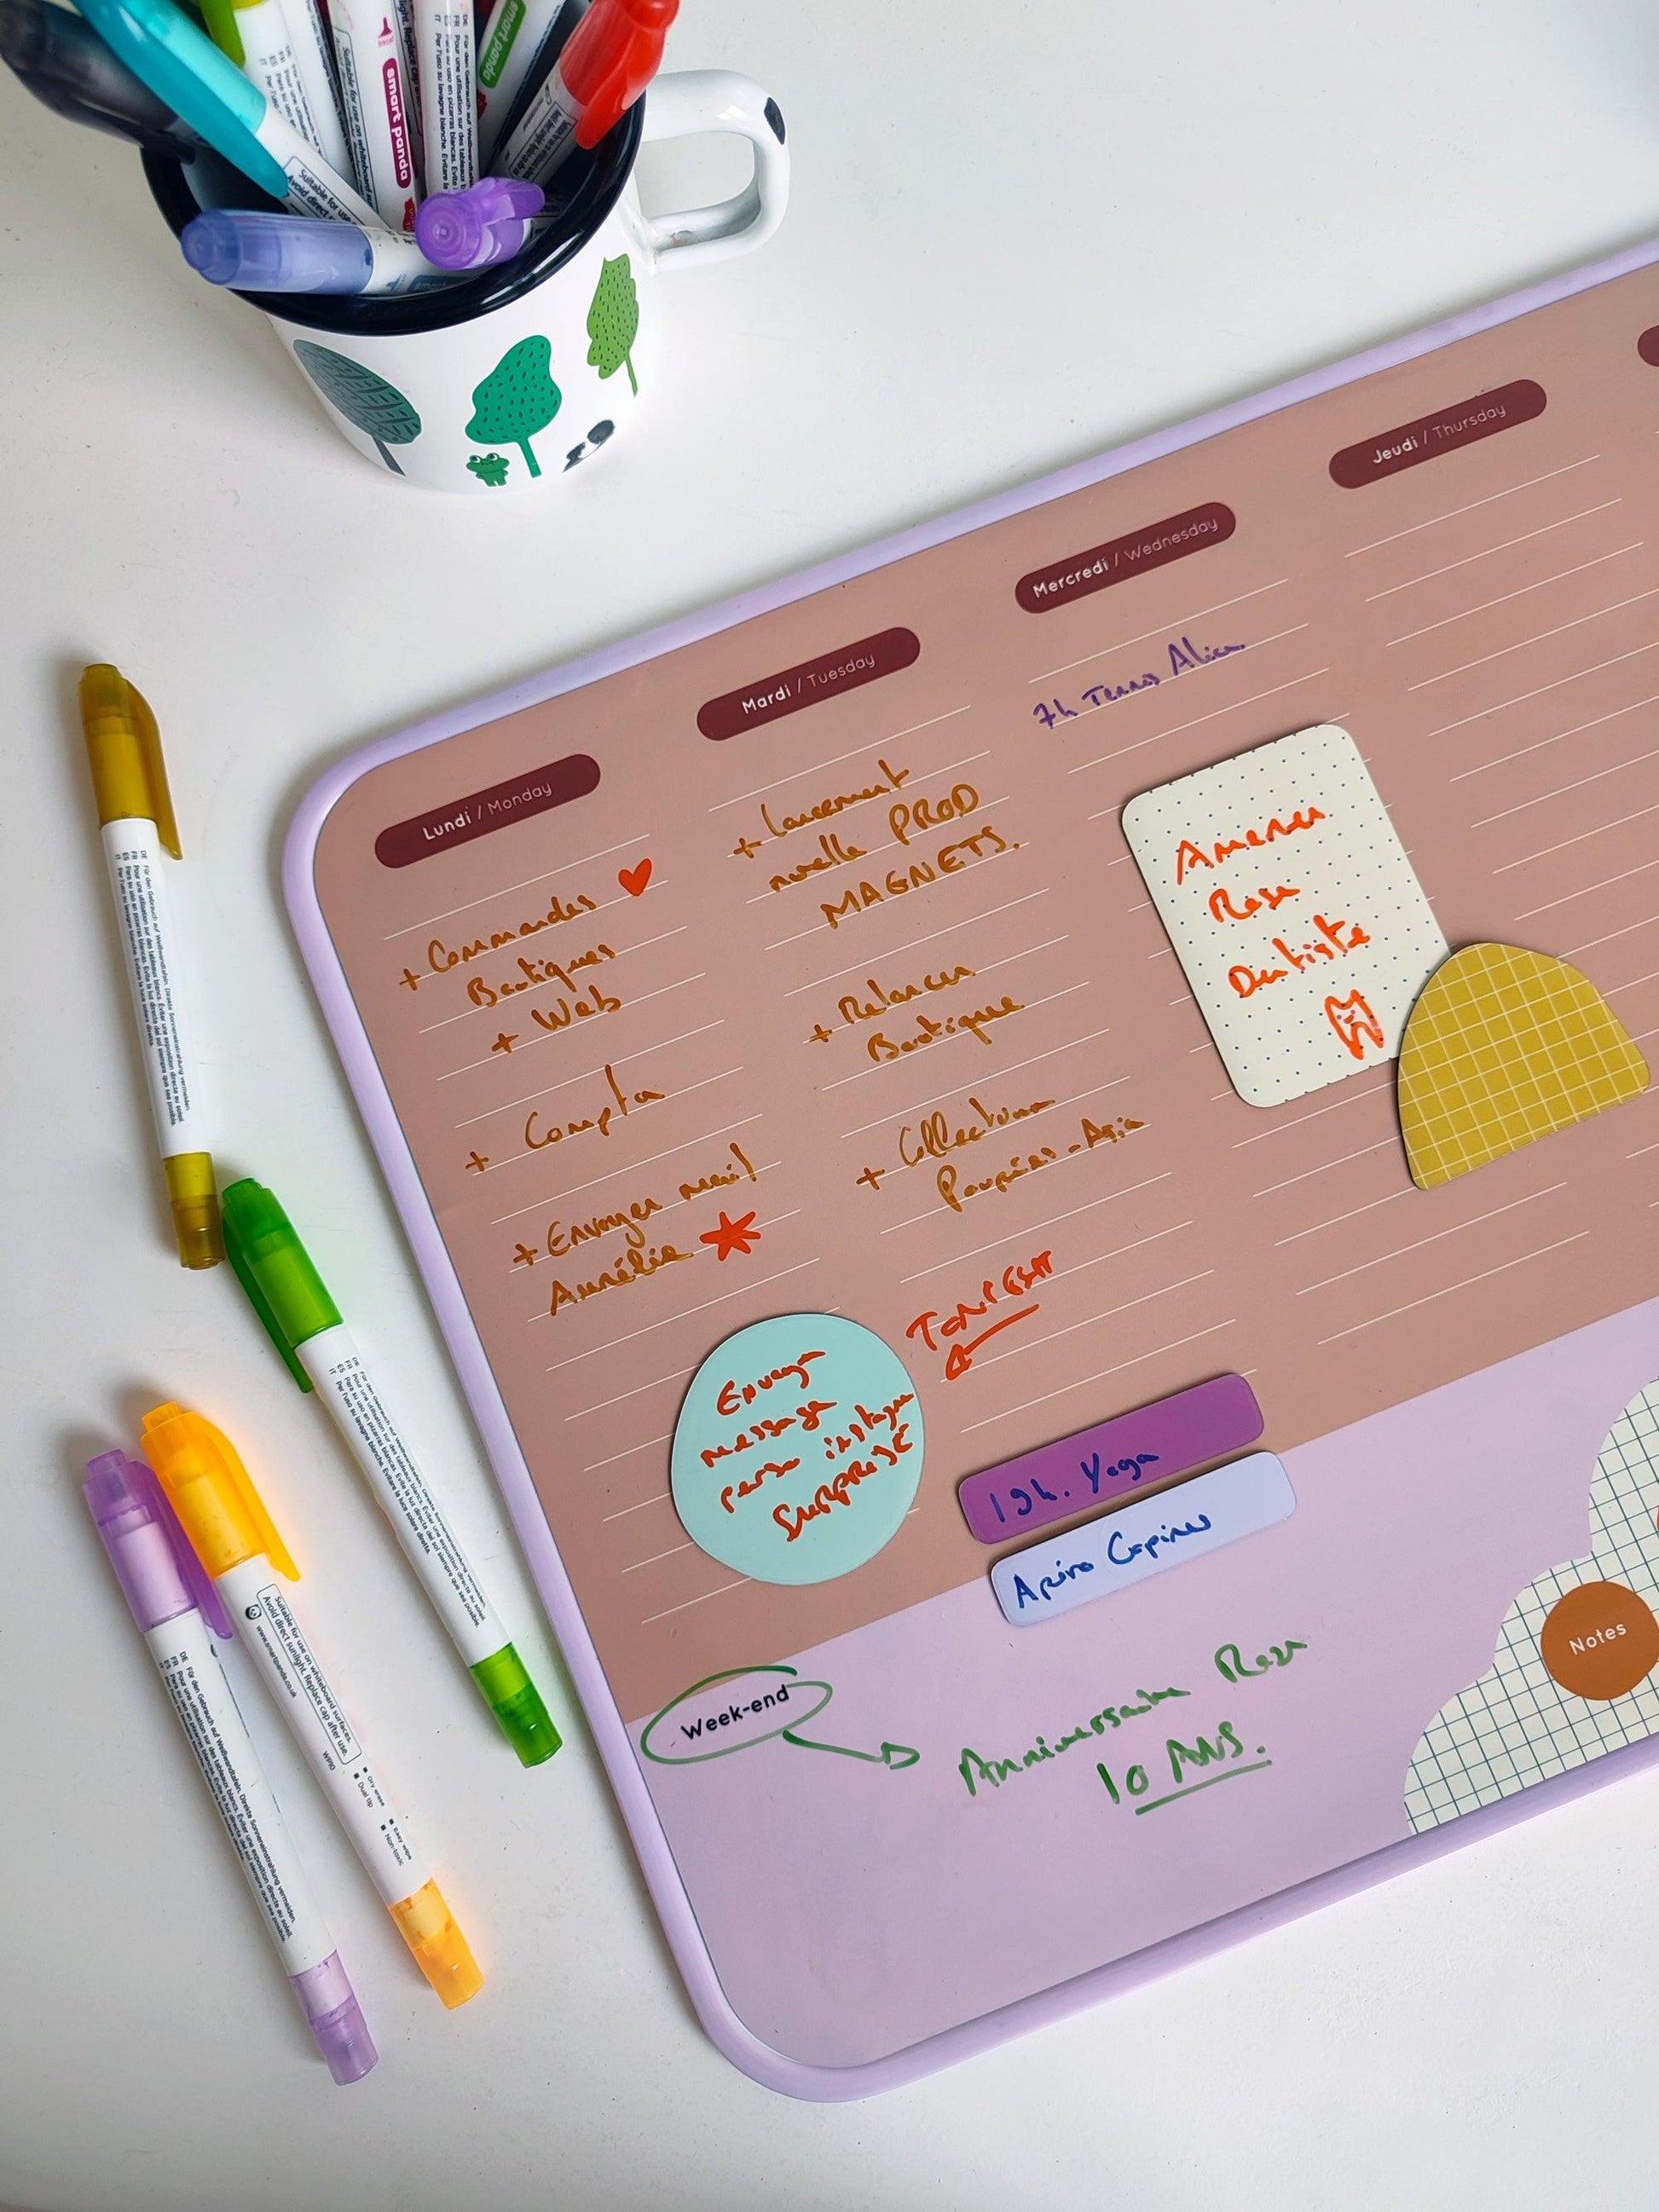 smart panda
smart panda
Lundi / Monday
+ Commandes
Boutiques
+ Web
+ Compta
+ Envoyer mail
Aurélie
Envoyer
message
perso instagram
SURPRISE
Mardi / Tuesday
+ Lancement
nouvelle PROD
MAGNETS.
+ Relancer
Boutique
+ Collection
TONIGHT
19h. Yoga
Apéro Copines
Mercredi / Wednesday
7h Tennis Alice
Amener
Rose
Dentiste
Jeudi / Thursday
Week-end
Anniversaire Rose
10 ANS.
Notes
Suitable for use on whiteboard surfaces.
Avoid direct sunlight. Replace cap after use.
www.smartpanda.co.uk
Dry erase
Easy wipe
Dual tip
Non-toxic